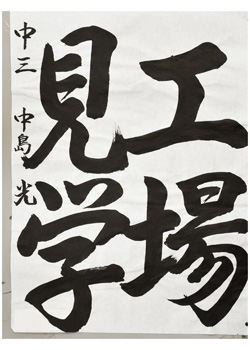 工場
見学
中三 中島光